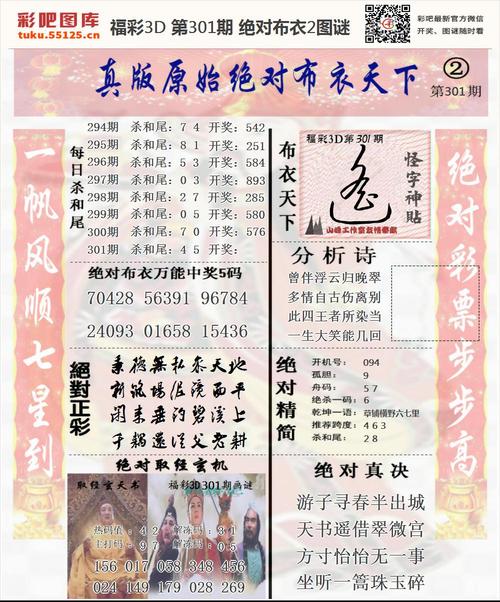 彩吧图库
tuku.55125.cn
福彩3D 第301期 绝对布衣2图谜
彩吧最新官方微信
开奖、图谜随时看
真版原始绝对布衣天下
②
第301期
一帆风顺七星到
每日杀和尾
294期 杀和尾: 7 4 开奖: 542
295期 杀和尾: 8 1 开奖: 251
296期 杀和尾: 5 3 开奖: 584
297期 杀和尾: 0 3 开奖: 893
298期 杀和尾: 2 7 开奖: 285
299期 杀和尾: 0 5 开奖: 580
300期 杀和尾: 7 0 开奖: 576
301期 杀和尾: 4 5 开奖:
绝对布衣万能中奖5码
70428 56391 96784
24093 01658 15436
絕對正彩
绝对取经玄机
取经玄天书
福彩3D301期画谜
热码值: 4 2 解冻码: 3 1
主打码: 9 7 解码: 0 5
156 017 058 348 456
024 149 179 028 269
布衣天下
福彩3D第301期
怪字神贴
分析诗
曾伴浮云归晚翠
多情自古伤离别
此四王者所染当
一生大笑能几回
绝对精简
开机号: 094
孤胆: 9
舟码: 5 7
绝杀一码: 6
乾坤一语: 草铺横野六七里
推荐跨度: 4 6 3
杀和尾: 2 8
绝对真决
游子寻春半出城
天书遥借翠微宫
方寸怡怡无一事
坐听一篙珠玉碎
绝对彩票步步高